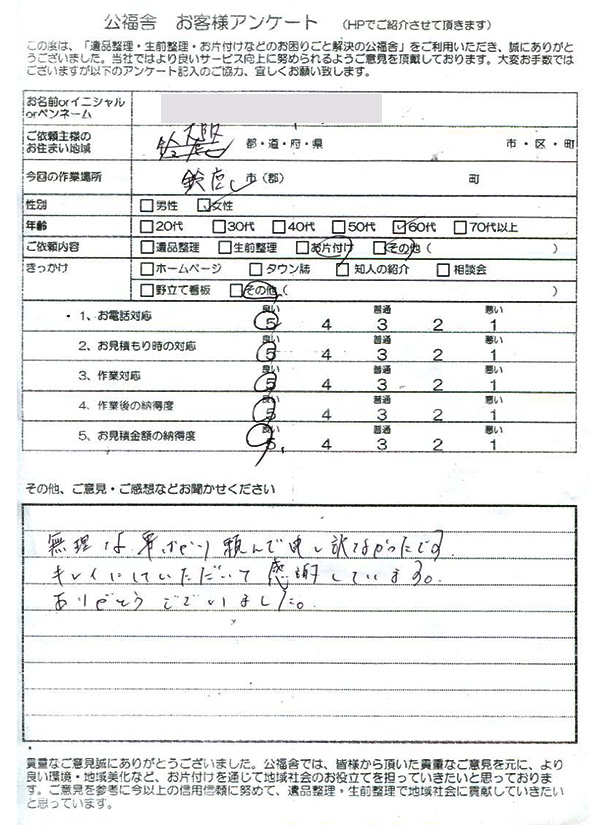 公福舎 お客様アンケート (HPでご紹介させて頂きます)
この度は、「遺品整理・生前整理・お片付けなどのお困りごと解決の公福舎」をご利用いただき、誠にありがと
うございました。当社ではより良いサービス向上に努められるようご意見を頂戴しております。大変お手数では
ございますが以下のアンケート記入のご協力、宜しくお願い致します。
お名前orイニシャル
orペンネーム
ご依頼主様の
お住まい地域 大阪 都・道・府・県 市・区・町
今回の作業場所 鈴鹿 市(郡) 町
性別 □男性 □女性
年齢 □20代 □30代 □40代 □50代 □60代 □70代以上
ご依頼内容 □遺品整理 □生前整理 □お片付け □その他( )
きっかけ □ホームページ □タウン誌 □知人の紹介 □相談会
□野立て看板 □その他( )
良い 普通 悪い
1、お電話対応 5 4 3 2 1
良い 普通 悪い
2、お見積もり時の対応 5 4 3 2 1
良い 普通 悪い
3、作業対応 5 4 3 2 1
良い 普通 悪い
4、作業後の納得度 5 4 3 2 1
良い 普通 悪い
5、お見積金額の納得度 5 4 3 2 1
その他、ご意見・ご感想などお聞かせください
無理な事ばかり頼んで申し訳なかったです。
キレイにしていただいて感謝しています。
ありがとうございました。
貴重なご意見誠にありがとうございました。公福舎では、皆様から頂いた貴重なご意見を元に、より
良い環境・地域美化など、お片付けを通じて地域社会のお役立てを担っていきたいと思っておりま
す。ご意見を参考に今以上の信用信頼に努めて、遺品整理・生前整理で地域社会に貢献していきたい
と思っています。